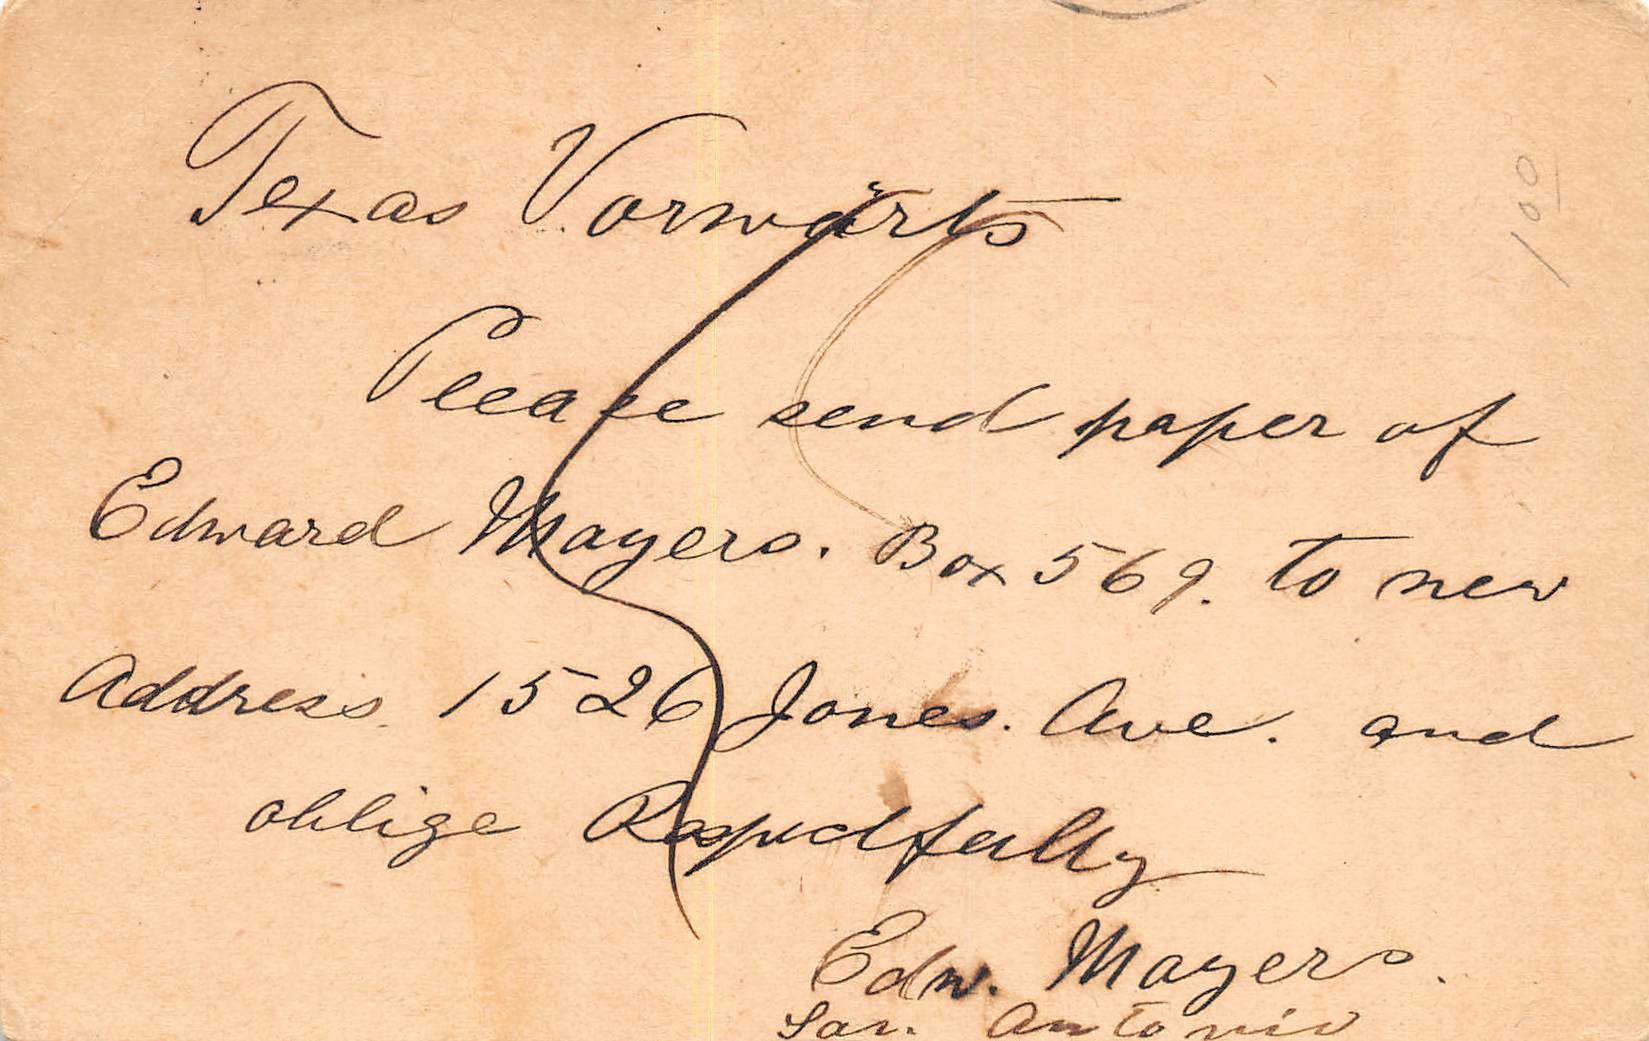 Texas Vorwärts
Please send paper of
Edward Mayers. Box 569. to new
Address. 1526 Jones. Ave. and
oblige Respectfully
Edw. Mayers.
San. Antonio
100